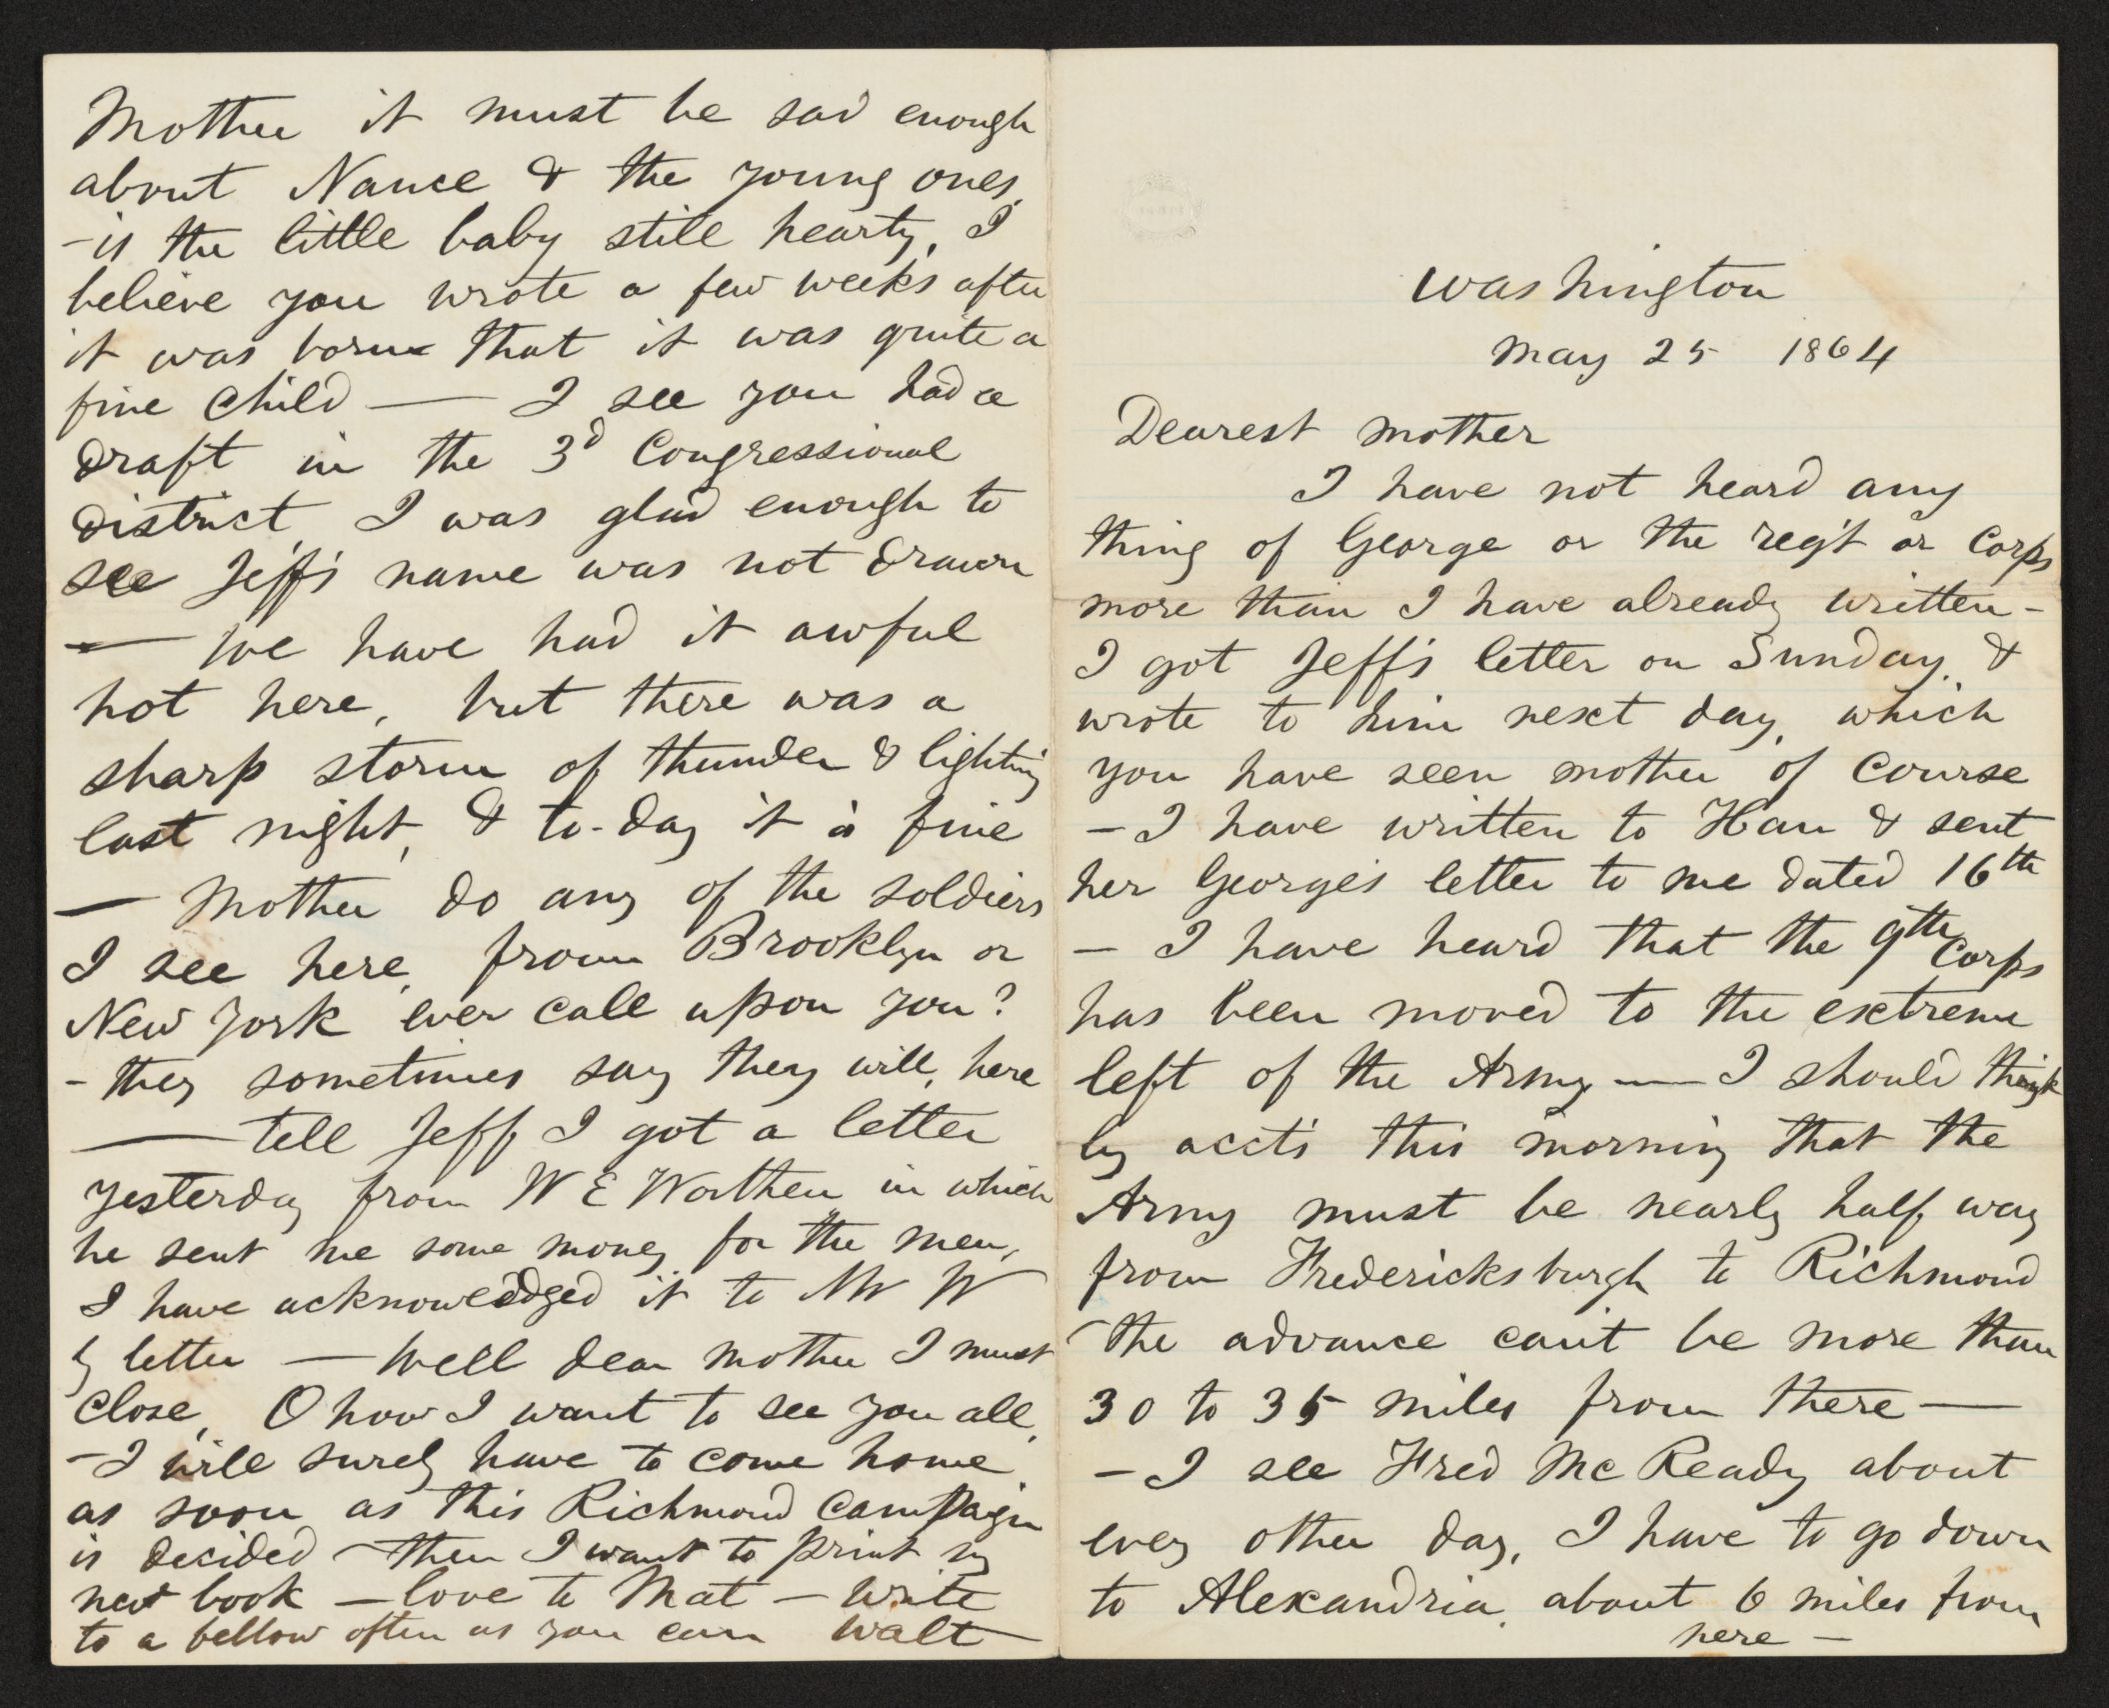 Washington
May 25 1864
Dearest mother
I have not heard any
thing of George or the reg't or Corps
more than I have already written –
I got Jeff's letter on Sunday, &
wrote to him next day, which
you have seen mother of course
– I have written to Han & sent
her George's letter to me dated 16th
– I have heard that the 9th Corps
has been moved to the extreme
left of the Army — I should think
by acct's this morning that the
Army must be nearly half way
from Fredericksburgh to Richmond
– the advance can't be more than
30 to 35 miles from there —
– I see Fred McReady about
every other day, I have to go down
to Alexandria, about 6 miles from
here –
Mother it must be sad enough
about Nance & the young ones,
– is the little baby still hearty, I
believe you wrote a few weeks after
it was born that it was quite a
fine child — I see you had a
draft in the 3d Congressional
district, I was glad enough to
see Jeff's name was not drawn
— We have had it awful
hot here, but there was a
sharp storm of thunder & lighting
last night, & to-day it is fine
— Mother do any of the soldiers
I see here, from Brooklyn or
New York ever call upon you?
– they sometimes say they will, here
— tell Jeff I got a letter
yesterday from W E Worthen in which
he sent me some money for the men,
I have acknowledged it to Mr W
by letter — Well dear mother I must
close, O how I want to see you all,
– I will surely have to come home
as soon as this Richmond campaign
is decided – then I want to print my
new book — love to Mat – write
to a fellow often as you can Walt